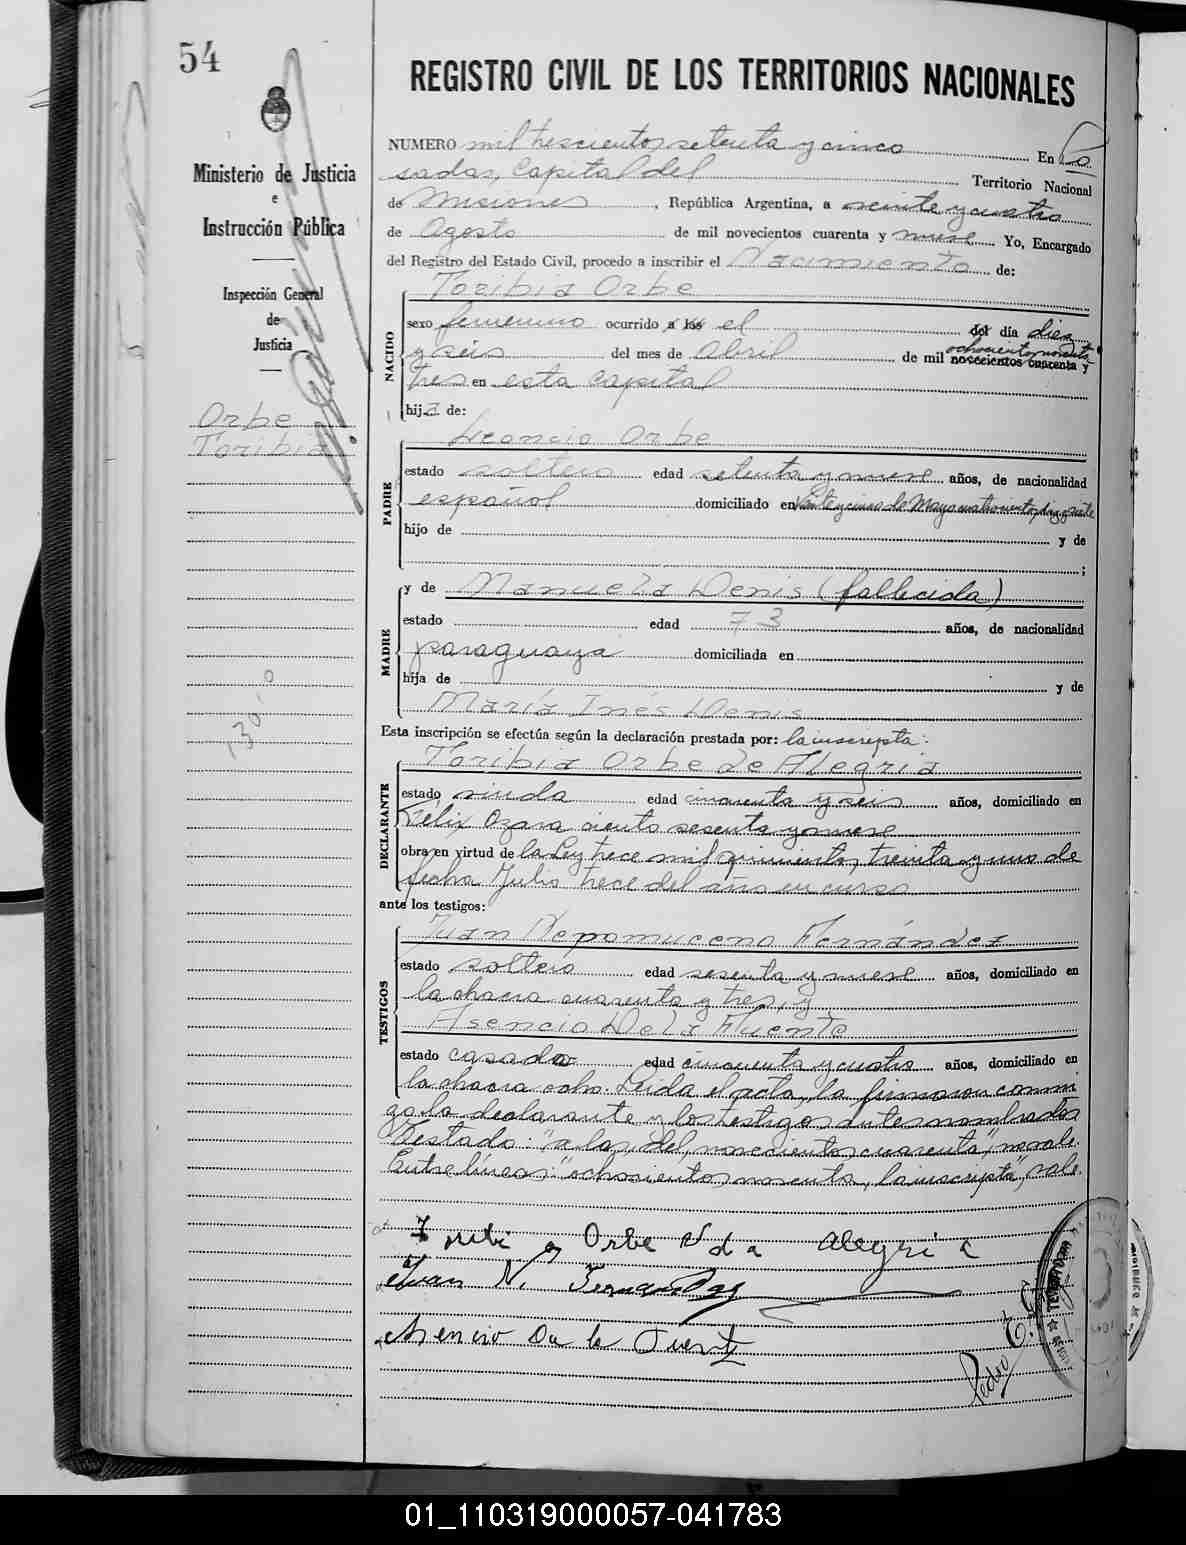 54
REGISTRO CIVIL DE LOS TERRITORIOS NACIONALES
Ministerio de Justicia
e
Instrucción Pública
Inspección General
de
Justicia
Orbe
Toribia
NUMERO mil trescientos setenta y cinco En Po
sadas, Capital del Territorio Nacional
de Misiones, República Argentina, a veinte y cuatro
de Agosto de mil novecientos cuarenta y nueve Yo, Encargado
del Registro del Estado Civil, procedo a inscribir el Nacimiento de:
Toribia Orbe
NACIDO
sexo femenino ocurrido a las el del día diez
y seis del mes de Abril de mil ochocientos noventa novecientos cuarenta y
tres en esta Capital
hija de:
PADRE
Leoncio Orbe
estado soltero edad setenta y nueve años, de nacionalidad
español domiciliado en Veinte y cinco de Mayo cuatrocientos diez y siete
hijo de y de
;
MADRE
y de Manuela Denis (fallecida)
estado edad 73 años, de nacionalidad
paraguaya domiciliada en
hija de y de
María Inés Denis
Esta inscripción se efectúa según la declaración prestada por: la inscripta:
DECLARANTE
Toribia Orbe de Alegria
estado viuda edad cincuenta y seis años, domiciliado en
Félix Azara ciento sesenta y nueve
obra en virtud de la Ley trece mil quinientos treinta y uno de
fecha Julio trece del año en curso
ante los testigos:
TESTIGOS
Juan Nepomuceno Fernández
estado soltero edad sesenta y nueve años, domiciliado en
la chacra cuarenta y tres, y
Asencio De la Fuente
estado casado edad cincuenta y cuatro años, domiciliado en
la chacra ocho. Leida el acta, la firmaron conmi
go la declarante y los testigos antes nombrados
Testado: "a las, del, novecientos cuarenta", no vale.
Entre líneas: "ochocientos noventa, la inscripta", vale.
Toribia Orbe Vda Alegria
Juan N. Fernandez
Asencio De la Fuente
Pedro
01_110319000057-041783